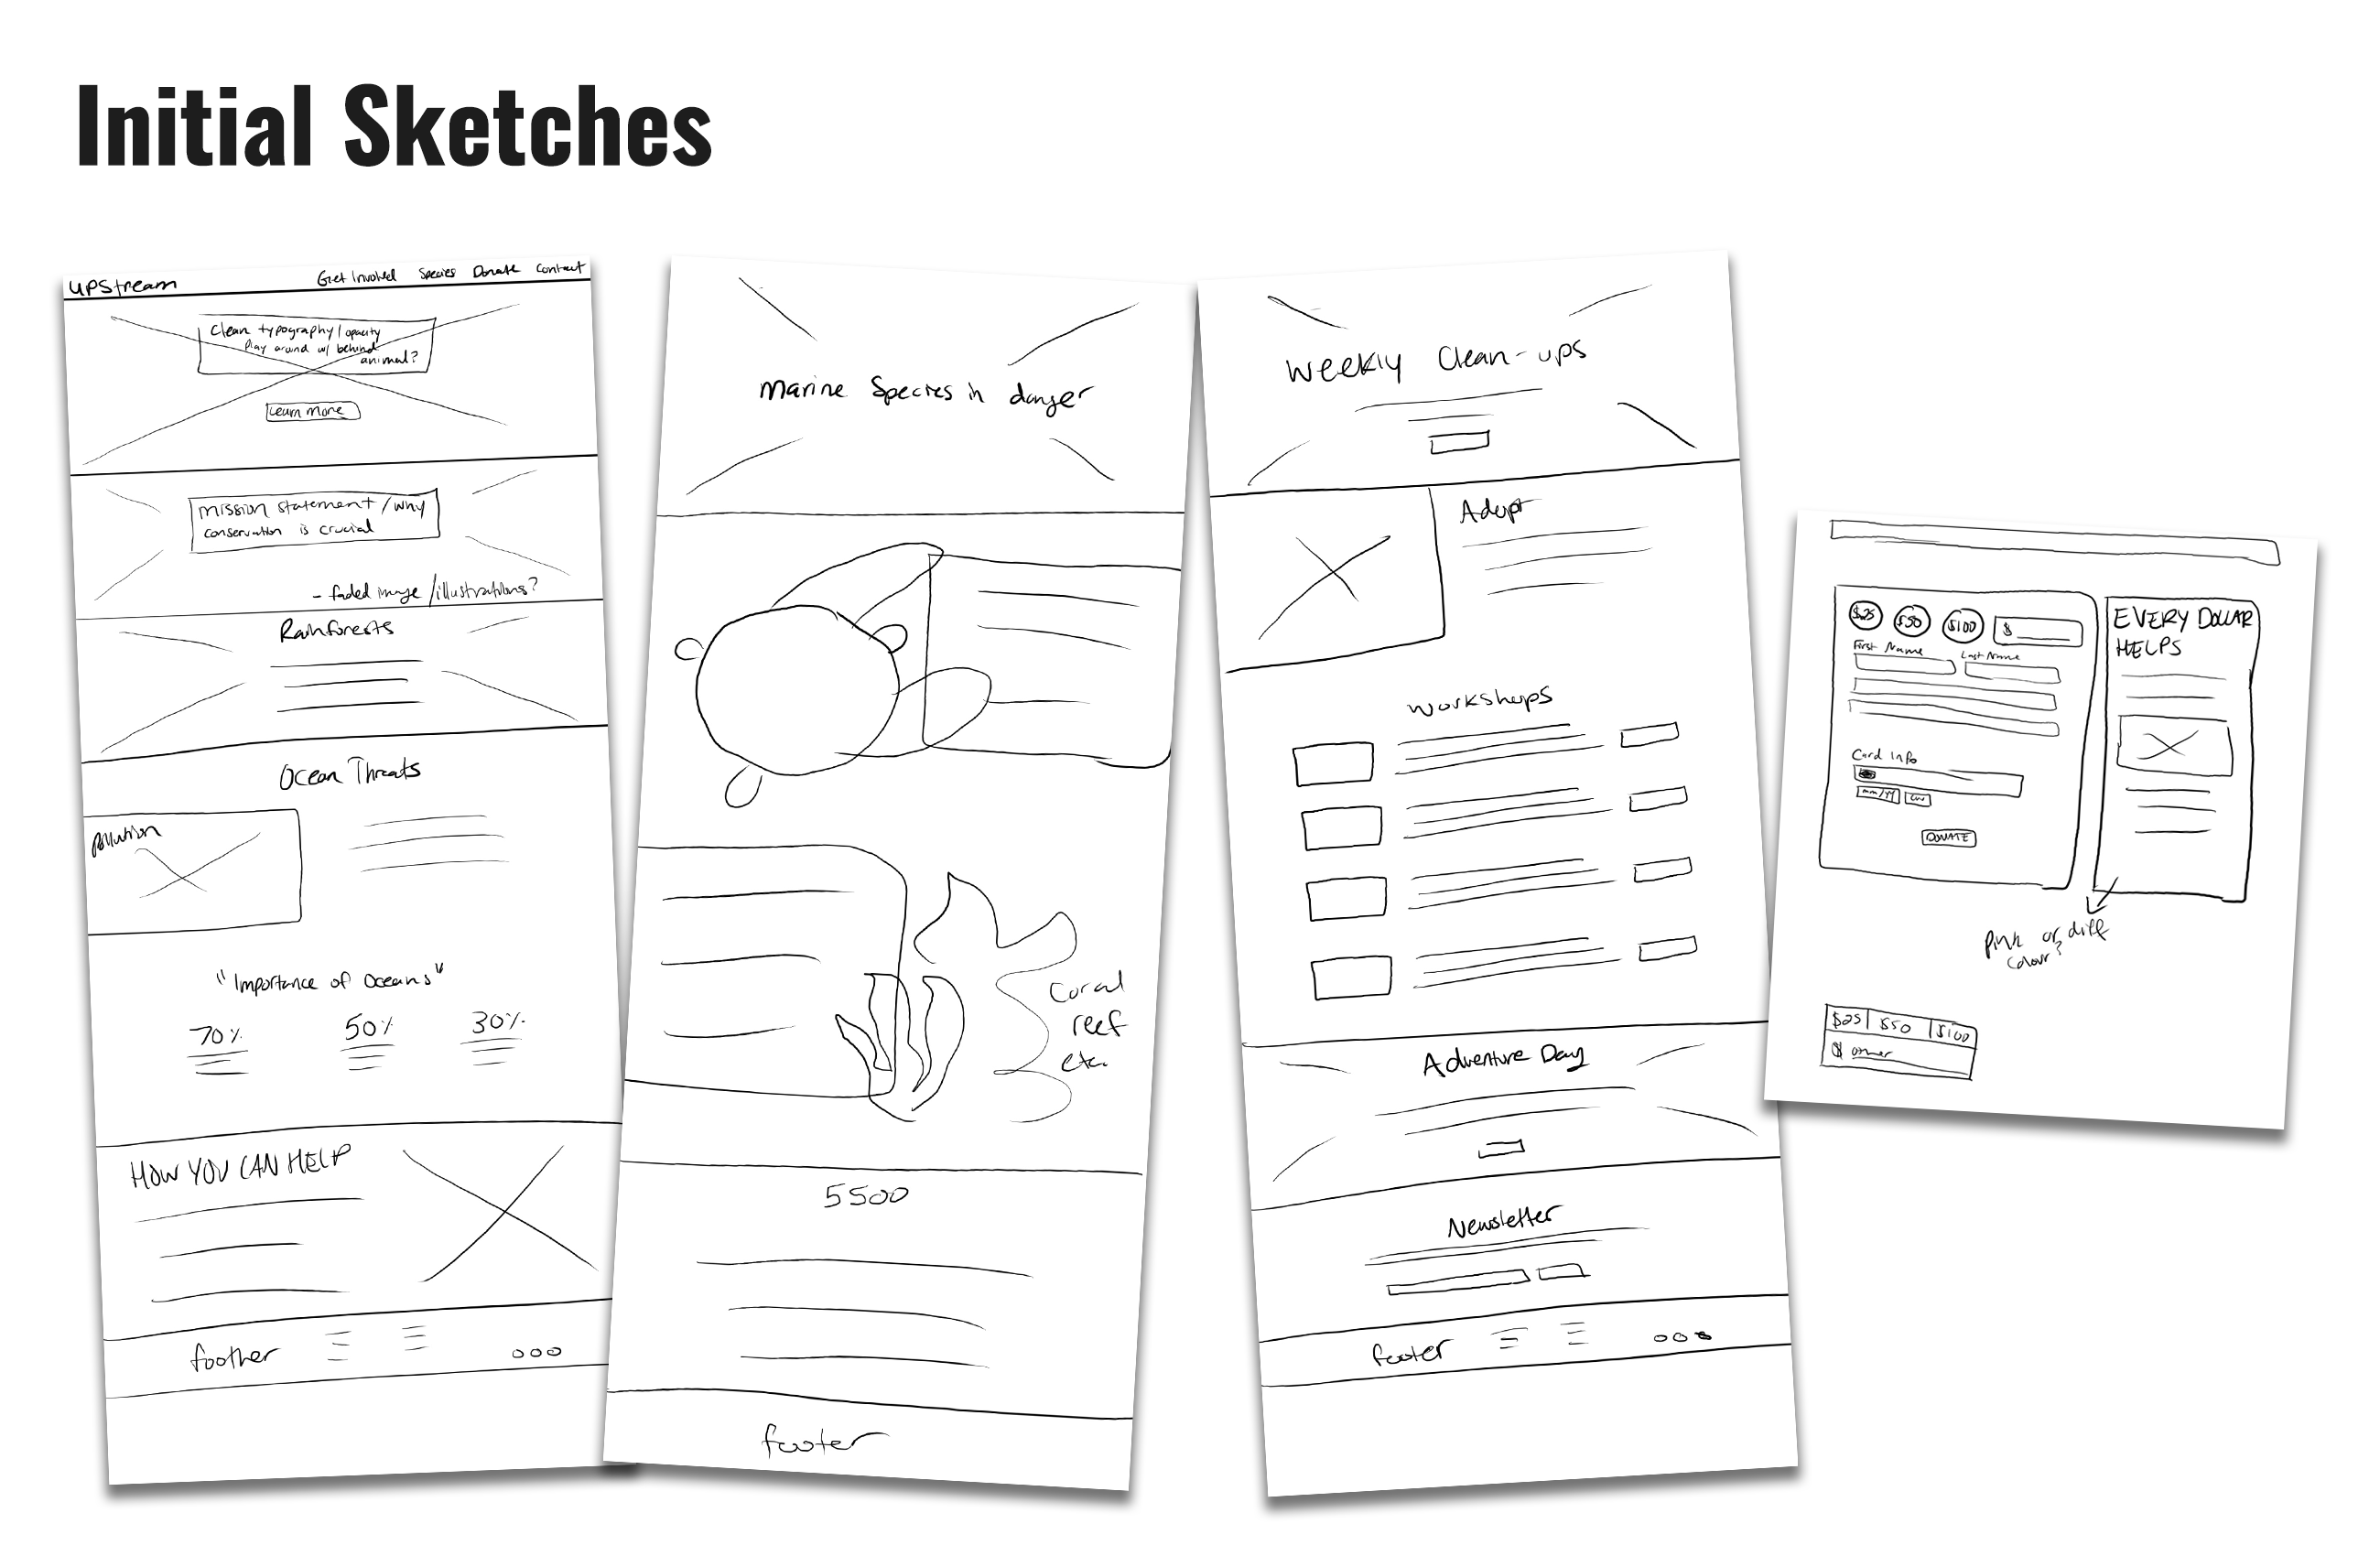 Initial Sketches
UPStream
Get Involved Species Donate Contact
Clean typography/opacity
Play around w/ behind
animal?
Learn More
mission statement/why
conservation is crucial
- faded image/illustrations?
Rainforests
Ocean Threats
Pollution
"Importance of Oceans"
70% 50% 30%
HOW YOU CAN HELP
foother
Marine Species in danger
Coral
reef
etc.
5500
footer
Weekly Clean-ups
Adopt
Workshops
Adventure Day
Newsletter
footer
$25 $50 $100 $
First Name Last Name
Card Info
mm/yy cvv
DONATE
EVERY DOLLAR
HELPS
pink or diff
colour?
$25 $50 $100
$ other